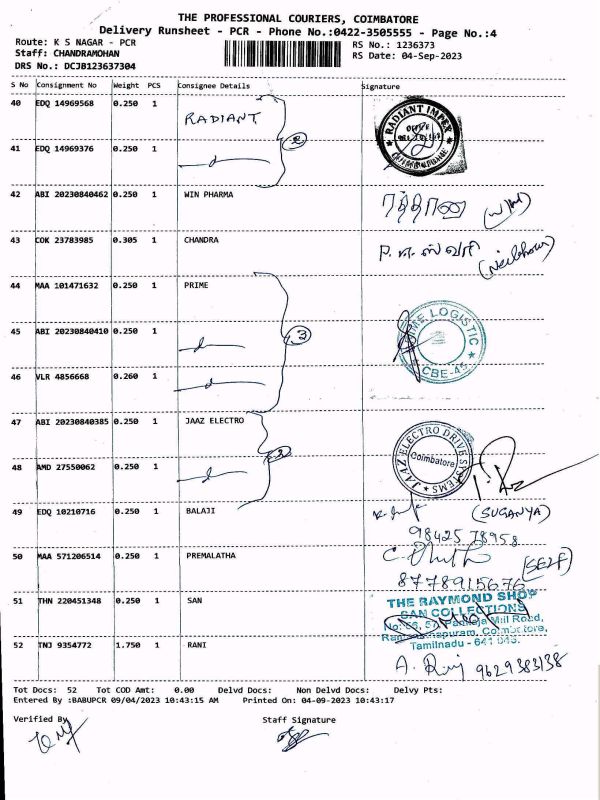 THE PROFESSIONAL COURIERS, COIMBATORE
Delivery Runsheet - PCR - Phone No.:0422-3505555 - Page No.:4
Route: K S NAGAR - PCR
RS No.: 1236373
Staff: CHANDRAMOHAN
RS Date: 04-Sep-2023
DRS No.: DCJB123637304
S No Consignment No Weight PCS Consignee Details Signature
40 EDQ 14969568 0.250 1 RADIANT
RADIANT IMPEX
2
41 EDQ 14969376 0.250 1
42 ABI 20230840462 0.250 1 WIN PHARMA
43 COK 23783985 0.305 1 CHANDRA
44 MAA 101471632 0.250 1 PRIME
45 ABI 20230840410 0.250 1
3
PRIME LOGISTIC
CBE-45
46 VLR 4856668 0.260 1
47 ABI 20230840385 0.250 1 JAAZ ELECTRO
JAAZ ELECTRO DRIVE SYSTEMS
Coimbatore
48 AMD 27550062 0.250 1
49 EDQ 10210716 0.250 1 BALAJI (SUGANYA)
98425 78958
50 MAA 571206514 0.250 1 PREMALATHA (SELF)
8778915676
51 THN 220451348 0.250 1 SAN
THE RAYMOND SHOP
SAN COLLECTIONS
Mill Road,
Coimbatore,
Tamilnadu - 641 045.
52 TNJ 9354772 1.750 1 RANI
9629383138
Tot Docs: 52 Tot COD Amt: 0.00 Delvd Docs: Non Delvd Docs: Delvy Pts:
Entered By :BABUPCR 09/04/2023 10:43:15 AM Printed On: 04-09-2023 10:43:17
Verified By Staff Signature